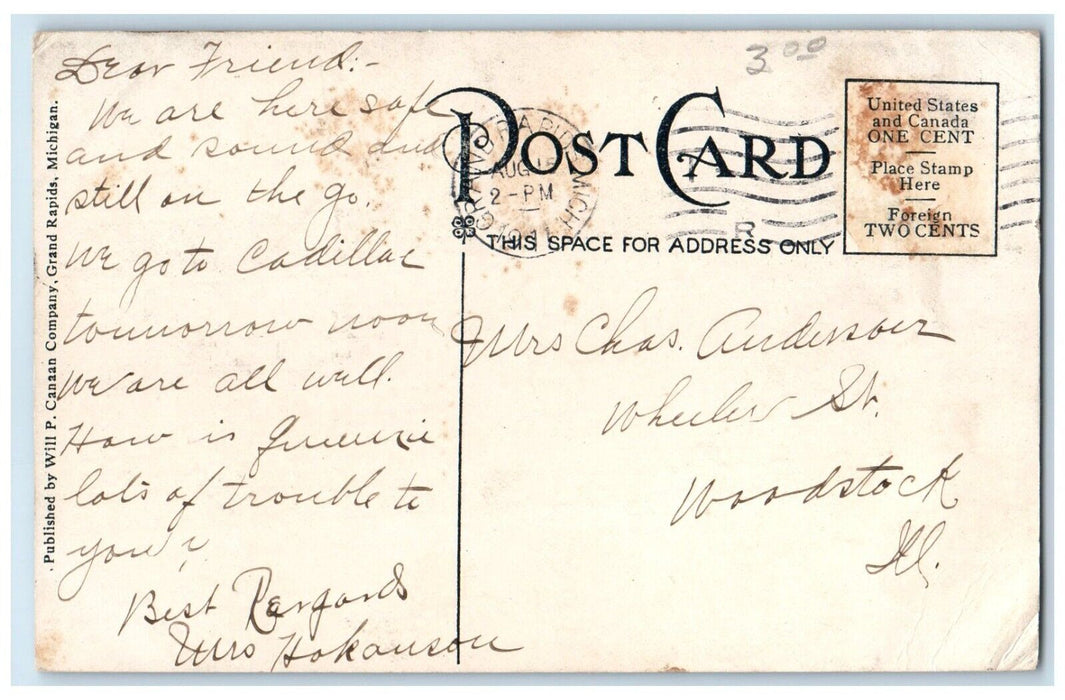 Dear Friend:-
We are here safe
and sound and
still on the go.
We go to Cadillac
tomorrow noon
We are all well.
How is
lots of trouble to
you?
Best Regards
Mrs Hokanson
Published by Will P. Canaan Company, Grand Rapids, Michigan.
3 00
POST CARD
GRAND RAPIDS MICH
AUG 15
2-PM
1911
R
THIS SPACE FOR ADDRESS ONLY
United States
and Canada
ONE CENT
Place Stamp
Here
Foreign
TWO CENTS
Mrs Chas. Anderson
Wheeler St.
Woodstock
Ill.